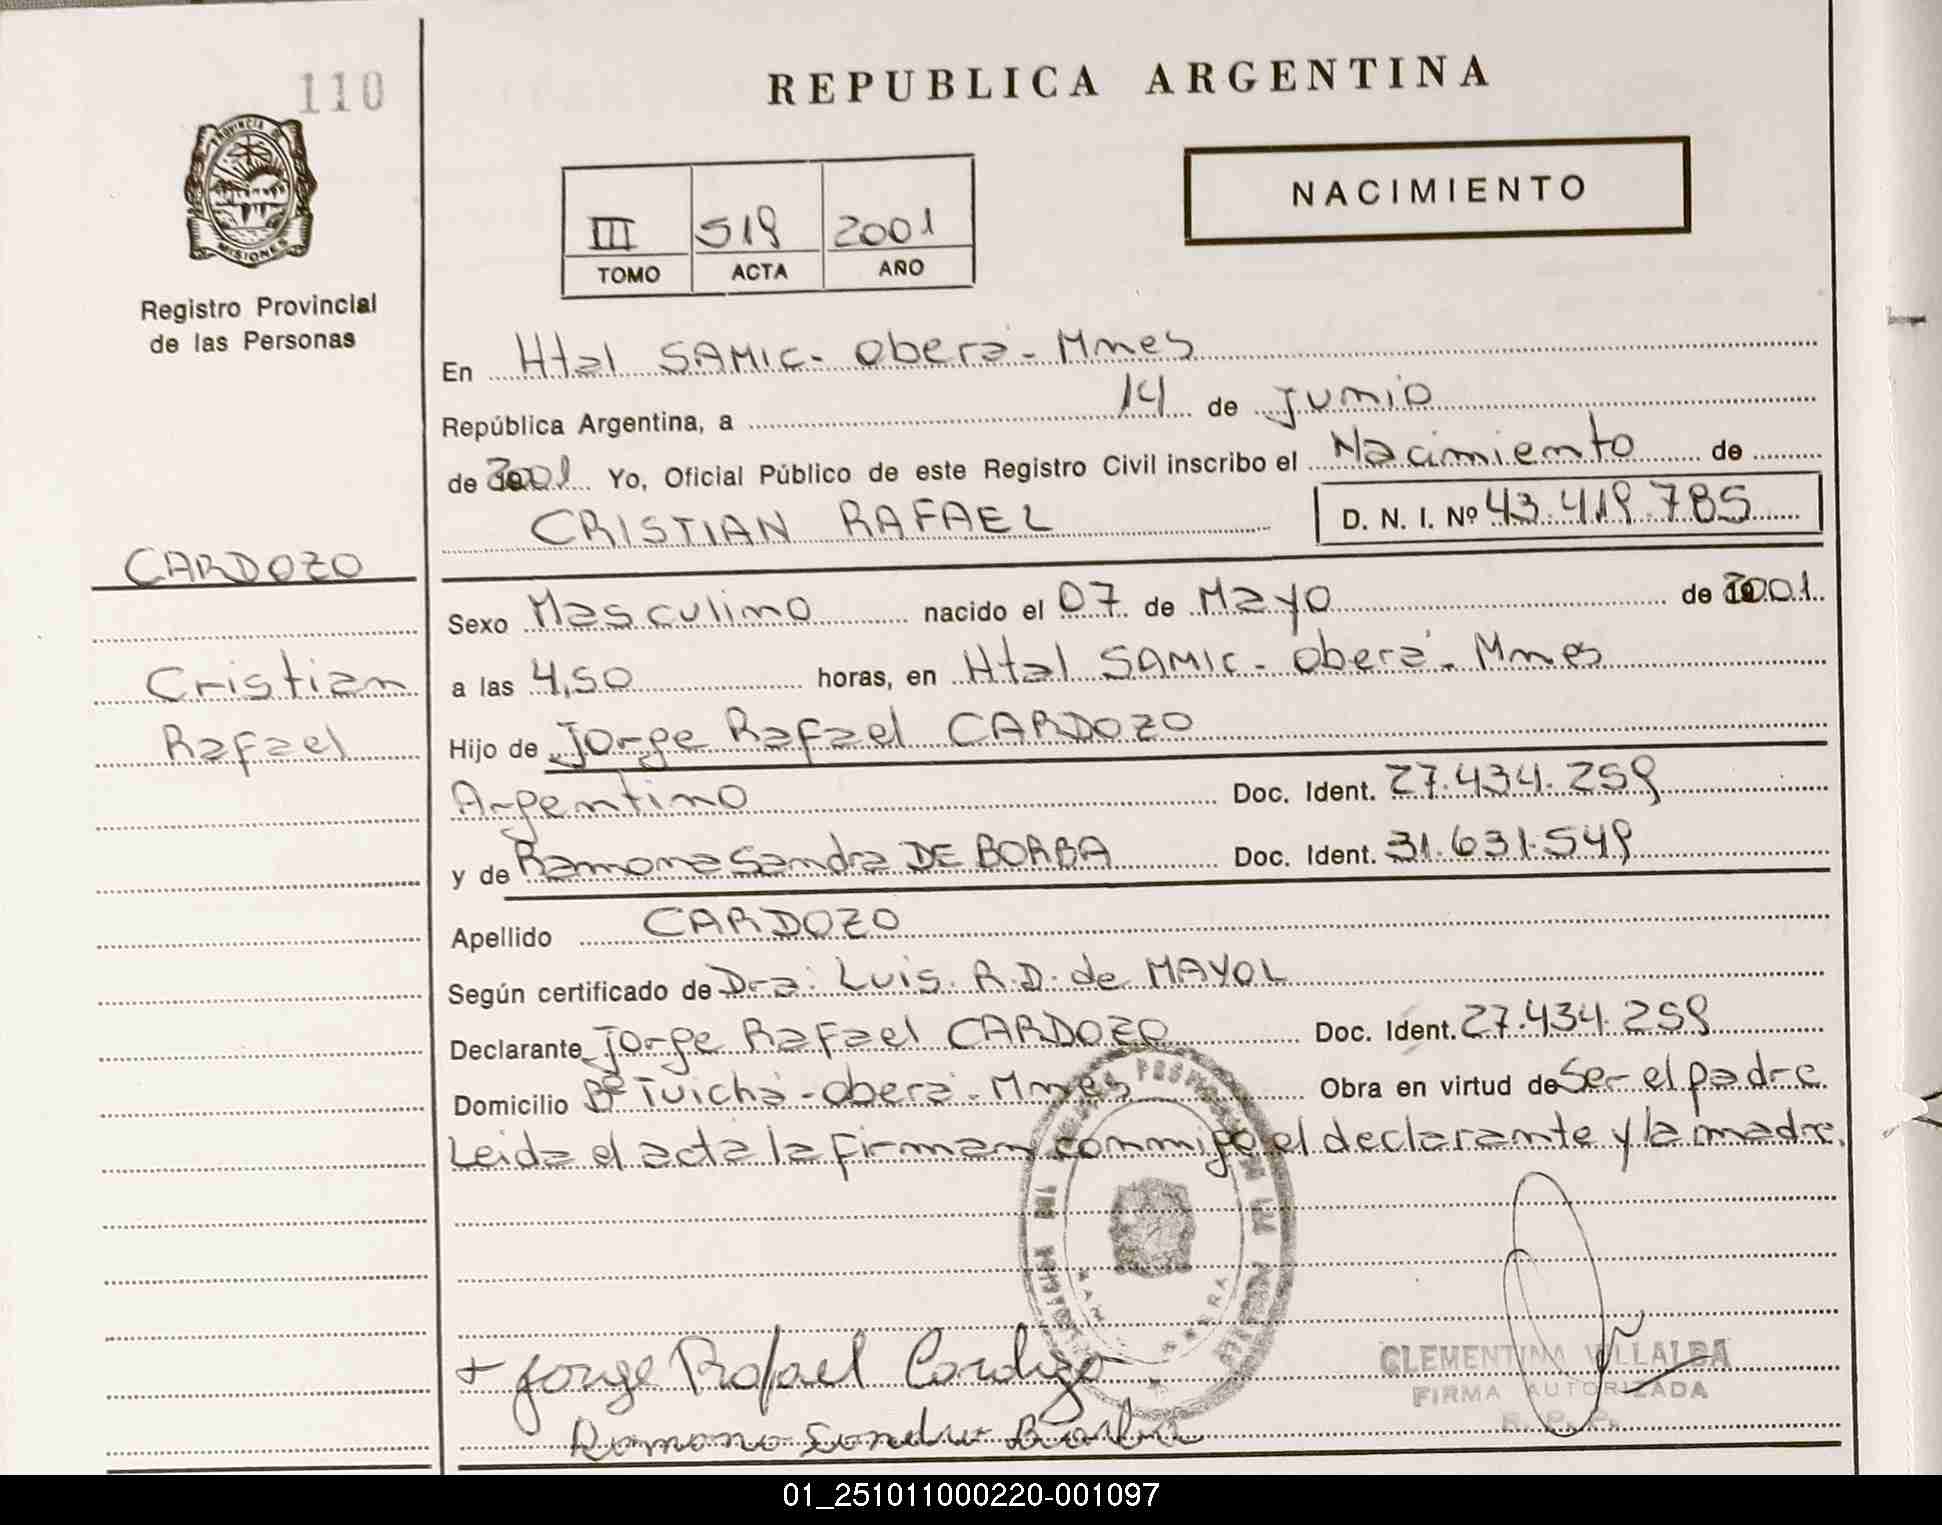 110
REPUBLICA ARGENTINA
PROVINCIA DE
MISIONES
Registro Provincial
de las Personas
III 519 2001
TOMO ACTA AÑO
NACIMIENTO
En Htal SAMIC - Oberá - Mnes
República Argentina, a 14 de Junio
de 2001 Yo, Oficial Público de este Registro Civil inscribo el Nacimiento de
CRISTIAN RAFAEL D. N. I. Nº 43.419.785
CARDOZO
Cristian
Rafael
Sexo Masculino nacido el 07 de Mayo de 2001.
a las 4,50 horas, en Htal SAMIC - Oberá - Mnes
Hijo de Jorge Rafael CARDOZO
Argentino Doc. Ident. 27.434.259
y de Ramona Sandra DE BORBA Doc. Ident. 31.631.549
Apellido CARDOZO
Según certificado de Dra: Luis. R.D. de MAYOL
Declarante Jorge Rafael CARDOZO Doc. Ident. 27.434.259
Domicilio Bº Tuichá - Oberá - Mnes Obra en virtud de Ser el padre
Leida el acta la firman conmigo el declarante y la madre.
+ Jorge Rafael Cardozo
Ramona Sandra Borba
CLEMENTINA VILLALBA
FIRMA AUTORIZADA
R. P. P.
01_251011000220-001097